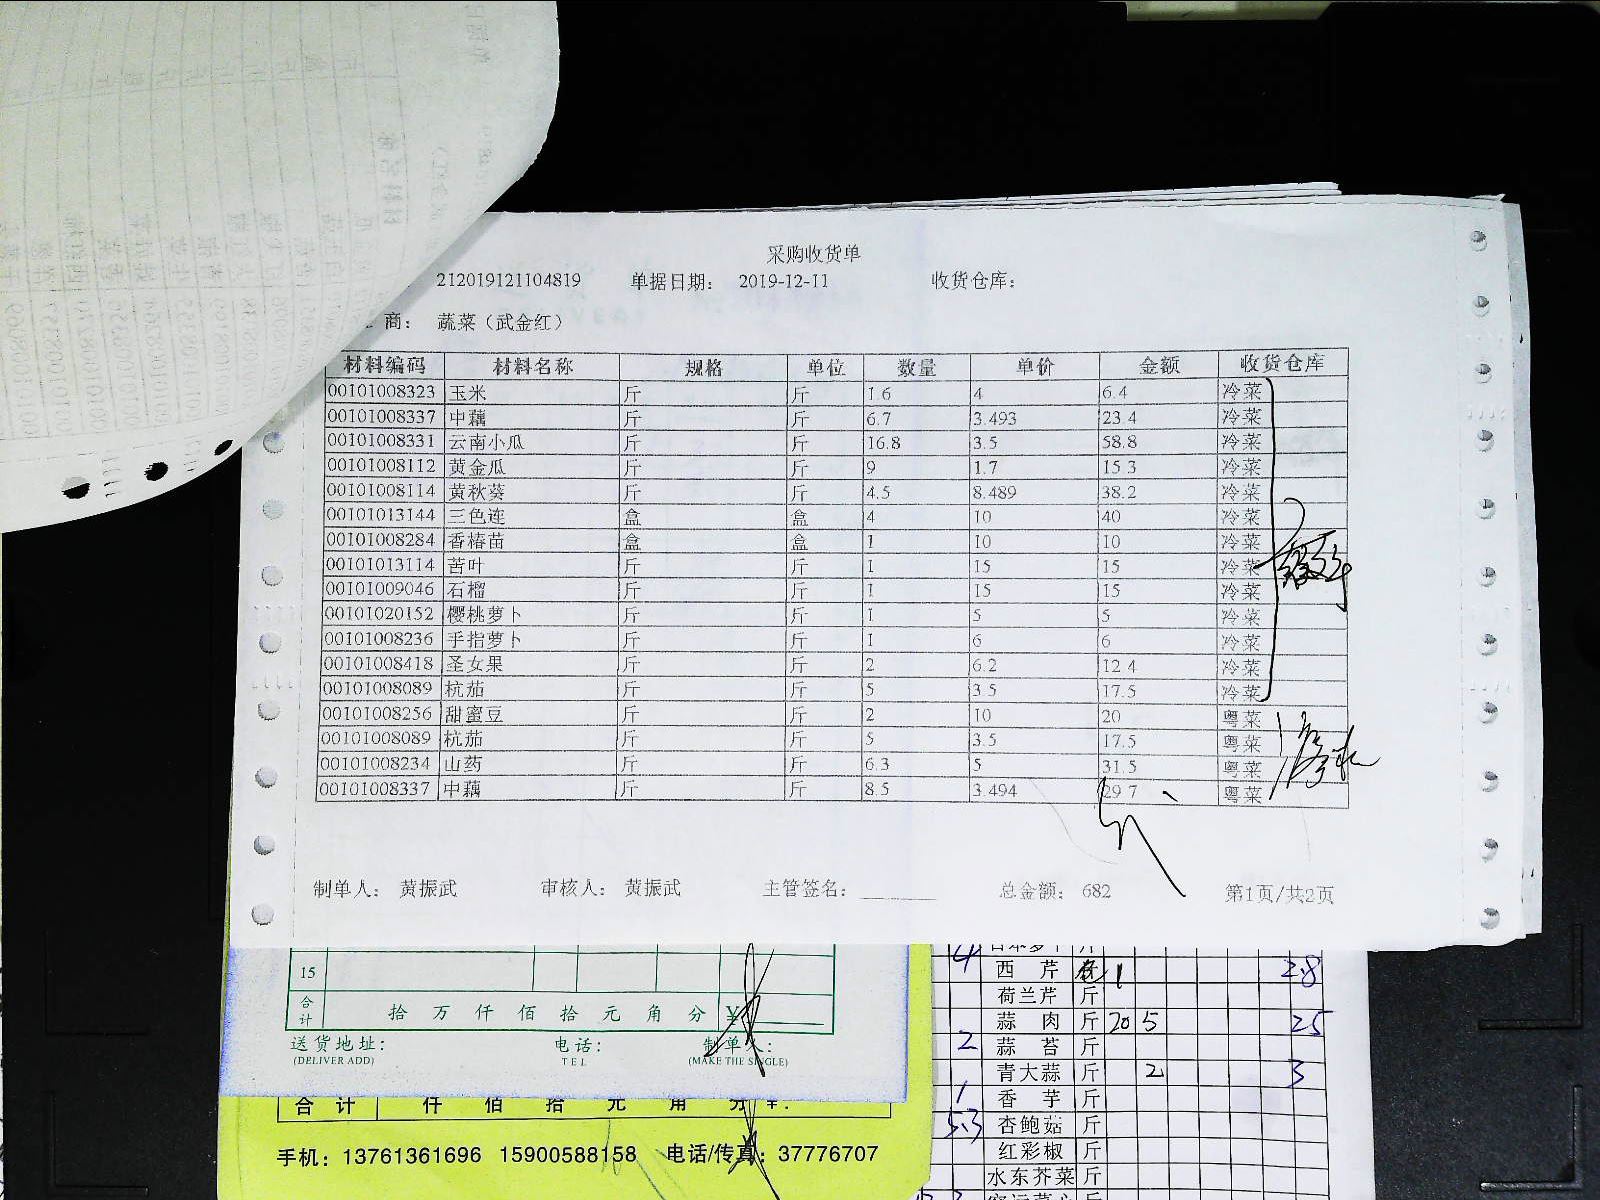 采购收货单
212019121104819 单据日期: 2019-12-11 收货仓库:
商: 蔬菜(武金红)
材料编码 材料名称 规格 单位 数量 单价 金额 收货仓库
00101008323 玉米 斤 斤 1.6 4 6.4 冷菜
00101008337 中藕 斤 斤 6.7 3.493 23.4 冷菜
00101008331 云南小瓜 斤 斤 16.8 3.5 58.8 冷菜
00101008112 黄金瓜 斤 斤 9 1.7 15.3 冷菜
00101008114 黄秋葵 斤 斤 4.5 8.489 38.2 冷菜
00101013144 三色连 盒 盒 4 10 40 冷菜
00101008284 香椿苗 盒 盒 1 10 10 冷菜
00101013114 苦叶 斤 斤 1 15 15 冷菜
00101009046 石榴 斤 斤 1 15 15 冷菜
00101020152 樱桃萝卜 斤 斤 1 5 5 冷菜
00101008236 手指萝卜 斤 斤 1 6 6 冷菜
00101008418 圣女果 斤 斤 2 6.2 12.4 冷菜
00101008089 杭茄 斤 斤 5 3.5 17.5 冷菜
00101008256 甜蜜豆 斤 斤 2 10 20 粤菜
00101008089 杭茄 斤 斤 5 3.5 17.5 粤菜
00101008234 山药 斤 斤 6.3 5 31.5 粤菜
00101008337 中藕 斤 斤 8.5 3.494 29.7 粤菜
制单人: 黄振武 审核人: 黄振武 主管签名: 总金额: 682 第1页/共2页
15
合计 拾 万 仟 佰 拾 元 角 分 ¥
送货地址: 电话: 制单人:
(DELIVER ADD) TEL (MAKE THE SINGLE)
合 计 仟 佰 拾 元 角 分 ¥:
手机: 13761361696 15900588158 电话/传真: 37776707
4
西 芹 1 2.8
荷兰芹 斤
蒜 肉 斤 20 5 25
2 蒜 苔 斤
青大蒜 斤 2 3
1 香 芋 斤
5.3 杏鲍菇 斤
红彩椒 斤
水东芥菜 斤